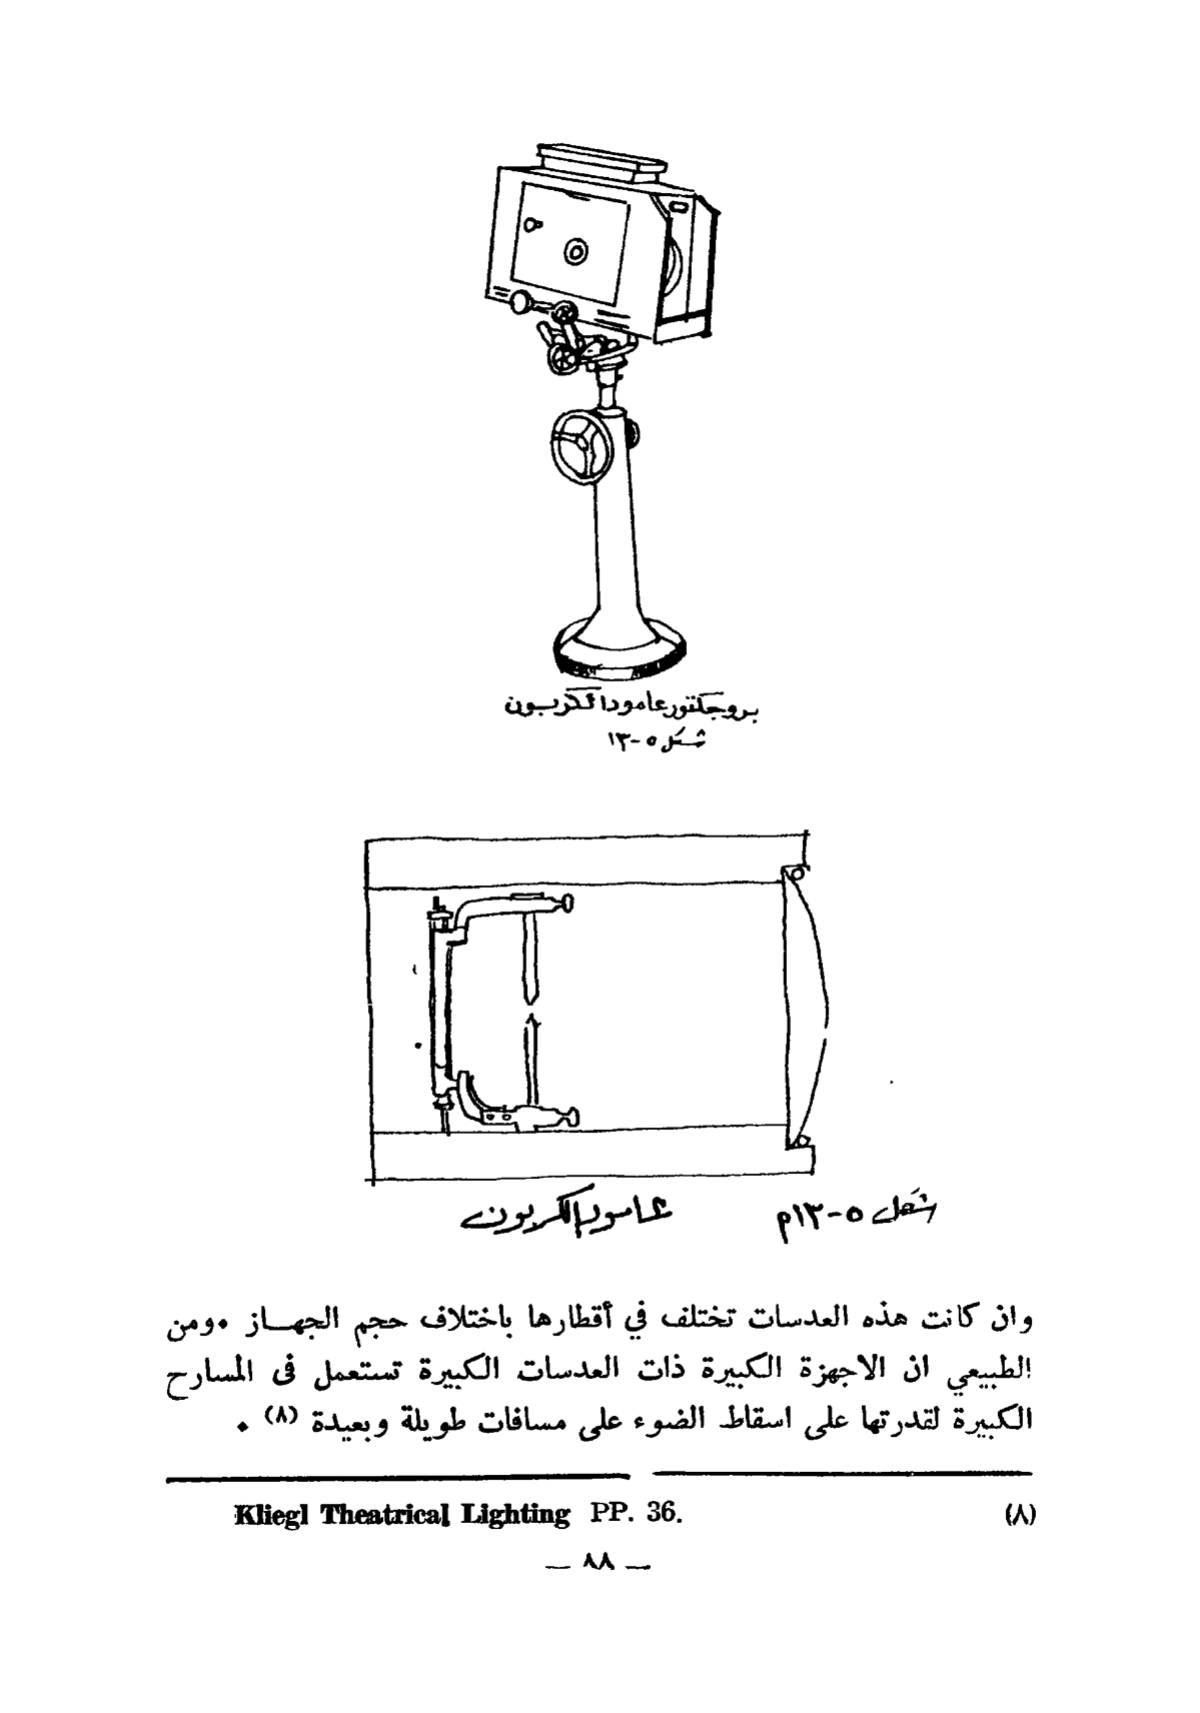 بروجكتور عامود الكربون
شكل ٥-١٣
عامود الكربون
شكل ٥-١٣م
وان كانت هذه العدسات تختلف في أقطارها باختلاف حجم الجهـــاز ٠ومن
الطبيعي ان الاجهزة الكبيرة ذات العدسات الكبيرة تستعمل فى المسارح
الكبيرة لقدرتها على اسقاط الضوء على مسافات طويلة وبعيدة (٨) ٠
(٨) Kliegl Theatrical Lighting PP. 36.
— ٨٨ —